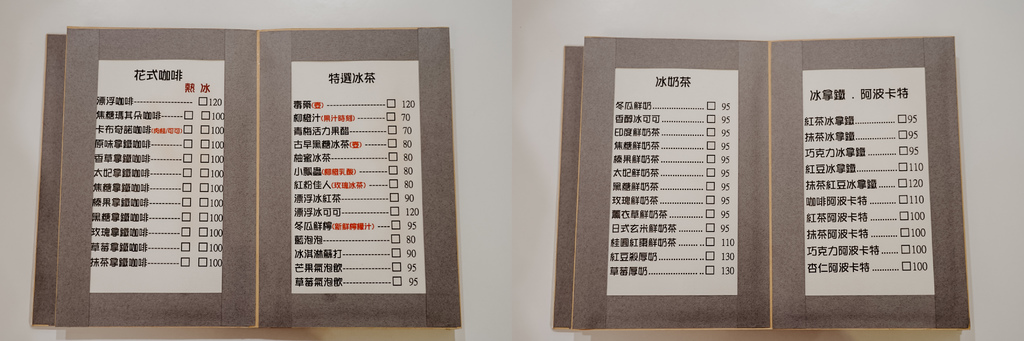 花式咖啡
熱 冰
漂浮咖啡---------------- □120
焦糖瑪其朵咖啡------ □ □100
卡布奇諾咖啡(肉桂/可可) □ □100
原味拿鐵咖啡-------- □ □100
香草拿鐵咖啡-------- □ □100
太妃拿鐵咖啡-------- □ □100
焦糖拿鐵咖啡-------- □ □100
榛果拿鐵咖啡-------- □ □100
黑糖拿鐵咖啡-------- □ □100
玫瑰拿鐵咖啡-------- □ □100
草莓拿鐵咖啡-------- □ □100
抹茶拿鐵咖啡-------- □ □100
特選冰茶
毒藥(壺) ---------------- □ 120
柳橙汁(果汁時刻) -------- □ 70
青梅活力果醋------------ □ 70
古早黑糖冰茶(壺) ------- □ 80
柚蜜冰茶---------------- □ 80
小瓢蟲(柳橙乳酸) -------- □ 80
紅粉佳人(玫瑰冰茶) ----- □ 80
漂浮冰紅茶-------------- □ 90
漂浮冰可可-------------- □ 120
冬瓜鮮檸(新鮮檸檬汁) ---- □ 95
藍泡泡------------------ □ 80
冰淇淋蘇打-------------- □ 90
芒果氣泡飲-------------- □ 95
草莓氣泡飲-------------- □ 95
冰奶茶
冬瓜鮮奶................ □ 95
香醇冰可可.............. □ 95
印度鮮奶茶.............. □ 95
焦糖鮮奶茶.............. □ 95
榛果鮮奶茶.............. □ 95
太妃鮮奶茶.............. □ 95
黑糖鮮奶茶.............. □ 95
玫瑰鮮奶茶.............. □ 95
薰衣草鮮奶茶........... □ 95
日式玄米鮮奶茶......... □ 95
桂圓紅棗鮮奶茶......... □ 110
紅豆緞厚奶.............. □ 130
草莓厚奶................ □ 130
冰拿鐵 . 阿波卡特
紅茶冰拿鐵 ............ □95
抹茶冰拿鐵 ............ □95
巧克力冰拿鐵 ......... □95
紅豆冰拿鐵 ............ □110
抹茶紅豆冰拿鐵 ...... □120
咖啡阿波卡特 ......... □110
紅茶阿波卡特 ......... □100
抹茶阿波卡特 ......... □100
巧克力阿波卡特 ...... □100
杏仁阿波卡特 ......... □100